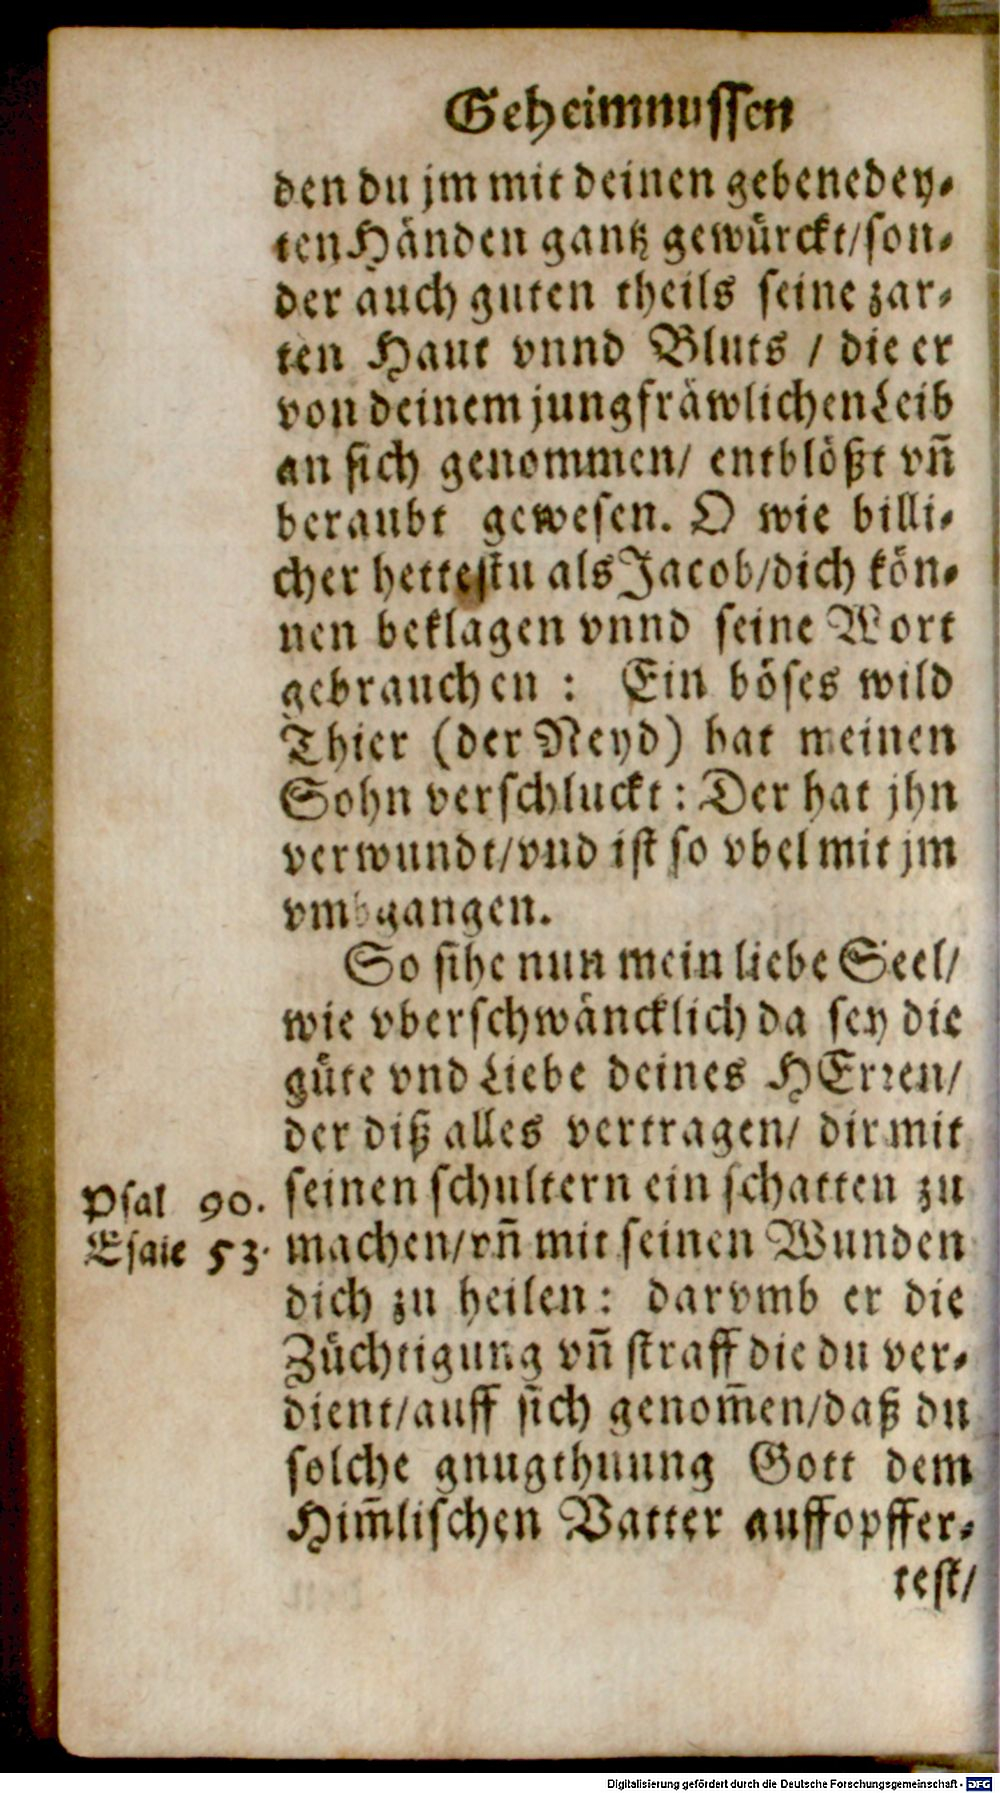 Geheimnussen
den du jm mit deinen gebenedey⸗
ten Händen gantz gewuͤrckt/son⸗
der auch guten theils seine zar⸗
ten Haut vnnd Bluts / die er
von deinem jungfraͤwlichen Leib
an sich genommen/ entbloͤßt vñ
beraubt gewesen. O wie billi⸗
cher hettestu als Jacob/dich koͤn⸗
nen beklagen vnnd seine Wort
gebrauchen : Ein boͤses wild
Thier (der Neyd) hat meinen
Sohn verschluckt : Der hat jhn
verwundt/vnd ist so vbel mit jm
vmbgangen.
So sihe nun mein liebe Seel/
wie vberschwäncklich da sey die
guͤte vnd Liebe deines HErꝛen/
der diß alles vertragen/ dir mit
seinen schultern ein schatten zu
Psal 90.
machen/vñ mit seinen Wunden
Esaie 53.
dich zu heilen : darvmb er die
Zuͤchtigung vñ straff die du ver⸗
dient/auff sich genom̃en/daß du
solche gnugthuung Gott dem
Him̃lischen Vatter auffopffer⸗
test/
Digitalisierung gefördert durch die Deutsche Forschungsgemeinschaft - DFG